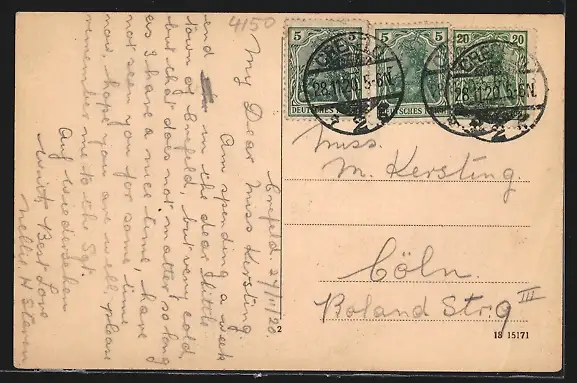 4150
Crefeld. 27/11/20.
My Dear Miss Kersting.
Am spending a week
end in the dear little
town of Crefeld, but very cold,
but that does not matter so long
as I have a nice time, have
not seen you for some time
now, hope you are well, please
remember me to the Sgt.
Auf Wiedersehen
With Best Love
Nellie. H
5
5
20
20
DEUTSCHES
CREFELD
28.11.20. 5-6N.
CREFELD
28.11.20. 5-6N.
2
Miss.
M. Kersting.
Cöln.
Roland Strg III
2
18 15171